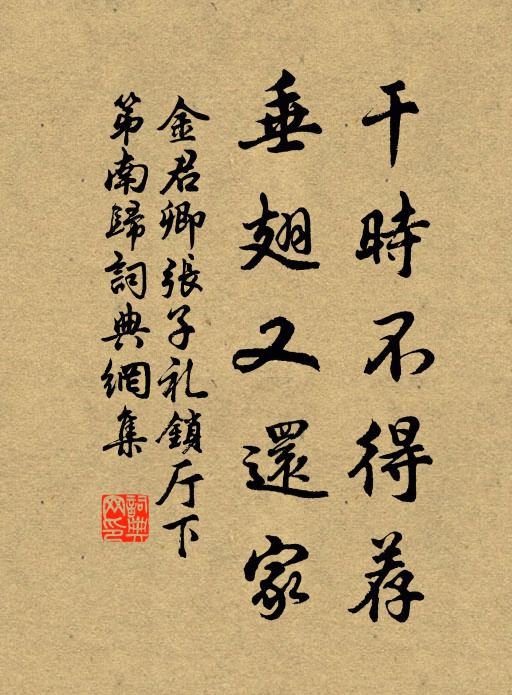 干時不得荐
垂翅又還家
金君卿張子礼鎖厅下
第南歸詞典網集
詞典网印